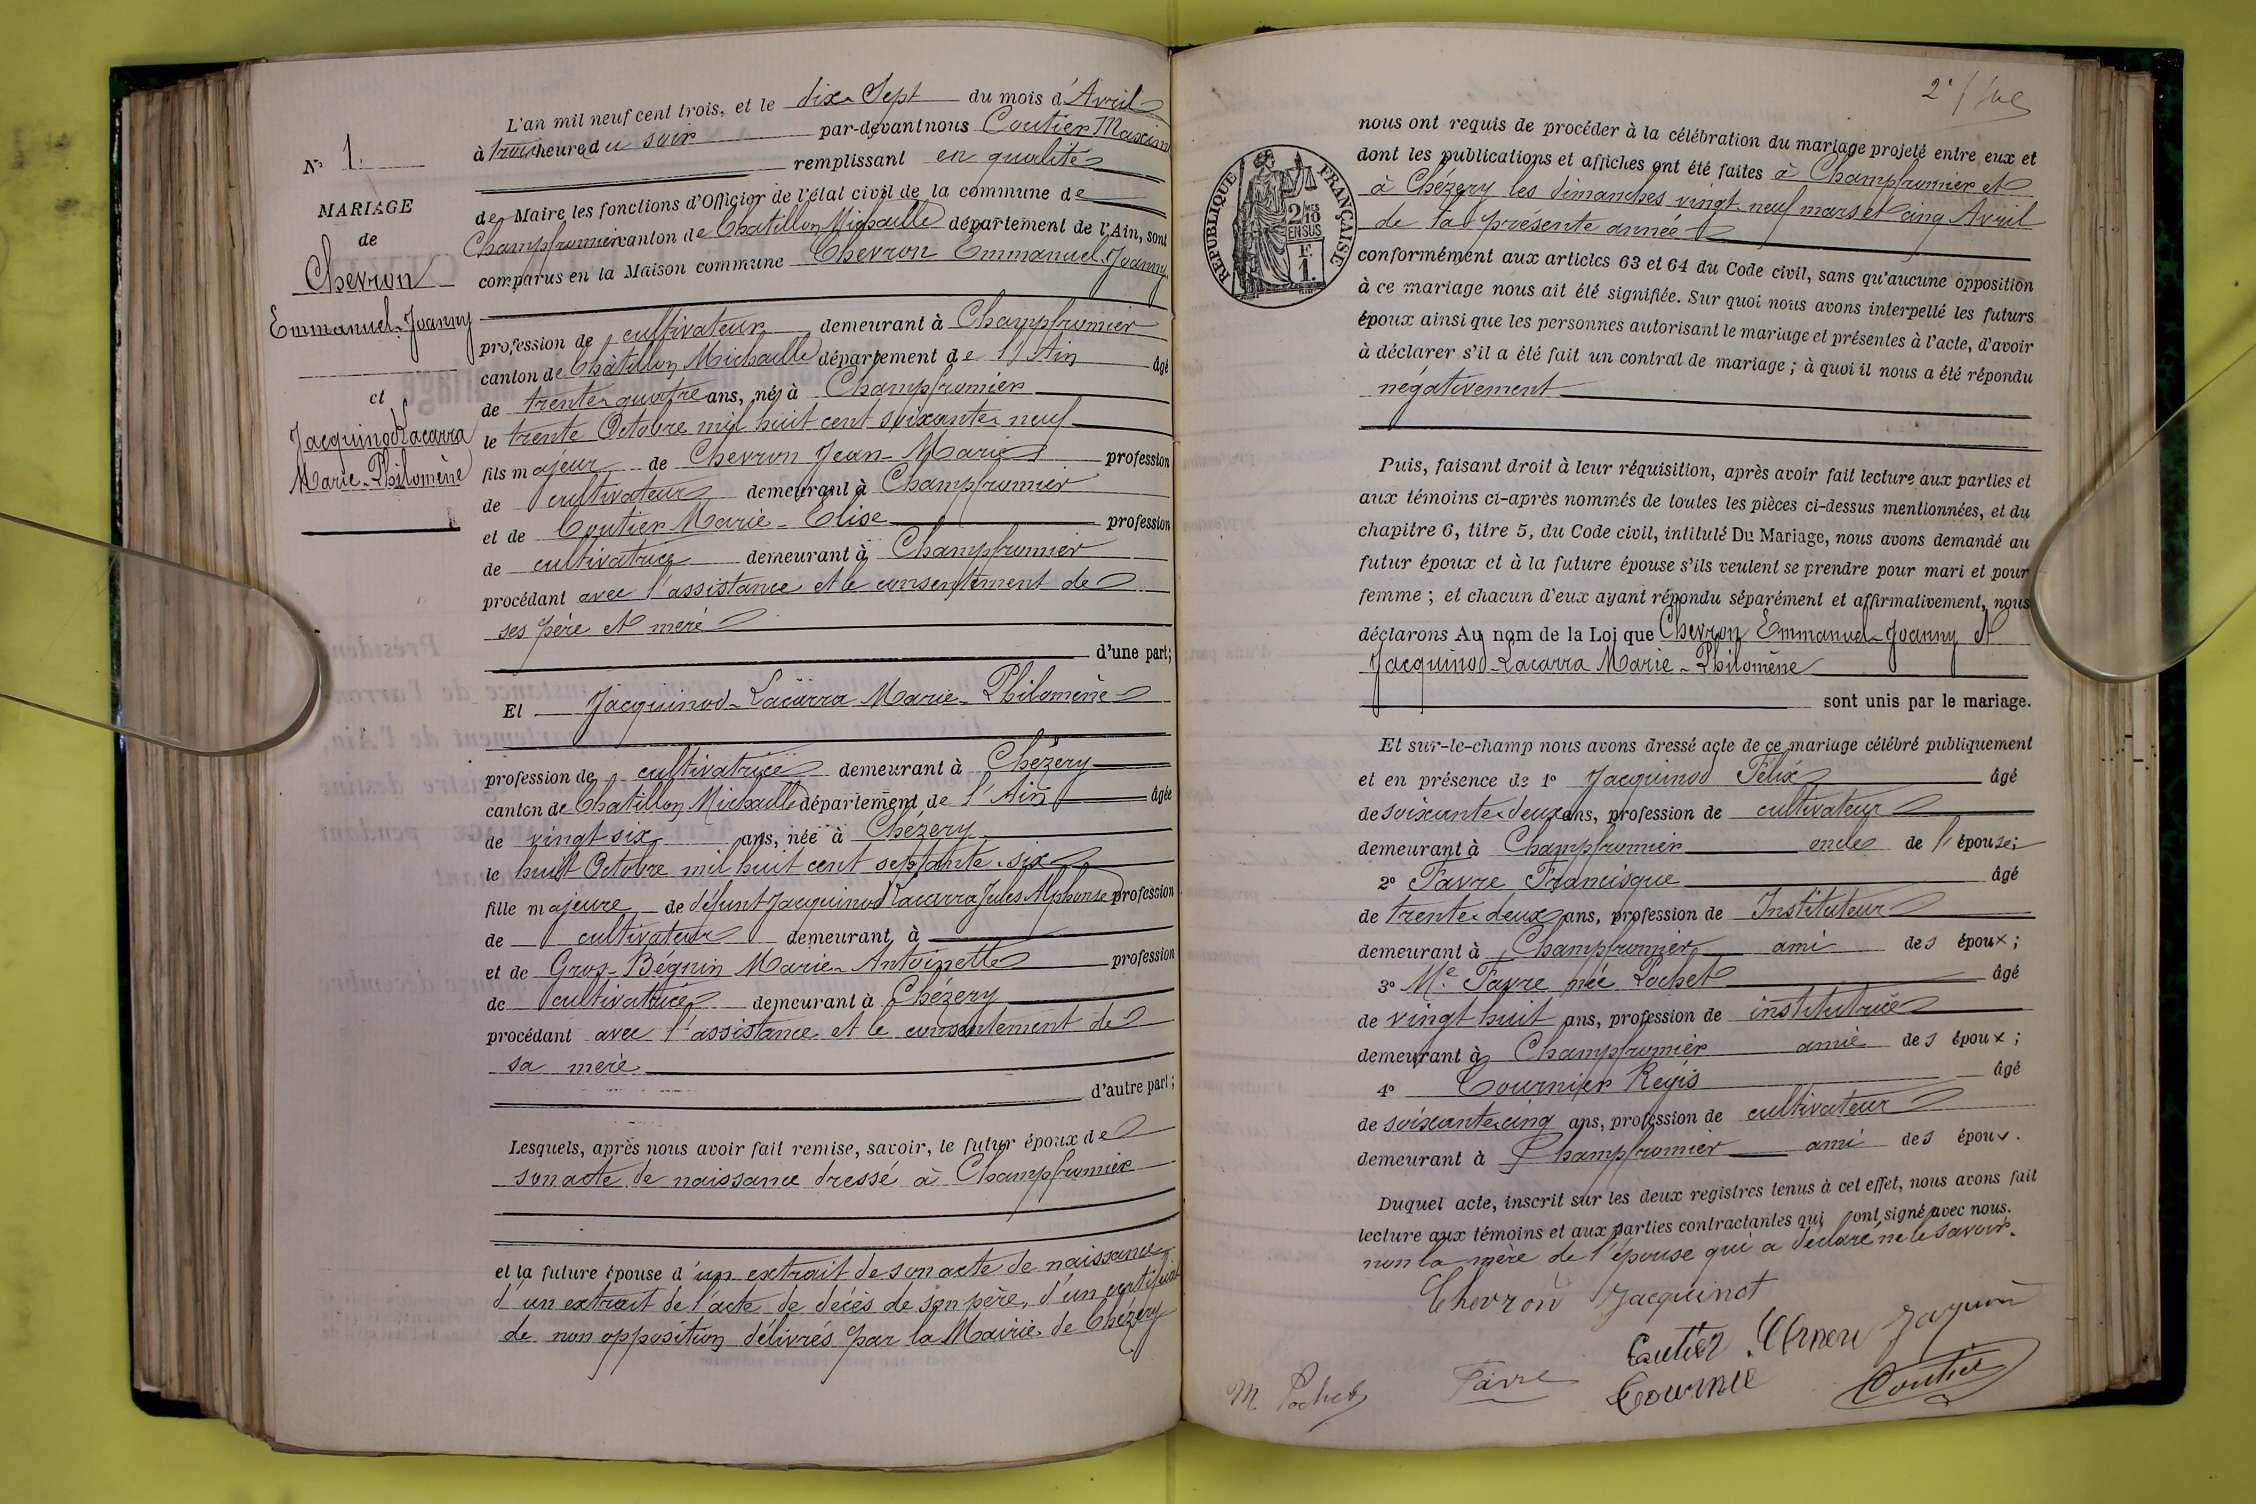 N° 1.
MARIAGE
de
Chevron
Emmanuel-Joanny
et
Jacquinod Lacarra
Marie-Philomène
L'an mil neuf cent trois, et le dix-Sept du mois d'Avril
à trois heures du soir par-devant nous Coutier Maxime
remplissant en qualité
de Maire les fonctions d'Officier de l'état civil de la commune de
Champfromier canton de Chatillon Michaille département de l'Ain, sont
comparus en la Maison commune Chevron Emmanuel-Joanny
profession de cultivateur demeurant à Champfromier
canton de Châtillon Michaille département de l'Ain âgé
de trente-quatre ans, né à Champfromier
le trente Octobre mil huit cent soixante-neuf
fils majeur de Chevron Jean-Marie profession
de cultivateur demeurant à Champfromier
et de Coutier Marie-Elise profession
de cultivatrice demeurant à Champfromier
procédant avec l'assistance et le consentement de
ses père et mère
d'une part;
Et Jacquinod-Lacarra Marie-Philomène
profession de cultivatrice demeurant à Chézery
canton de Chatillon Michaille département de l'Ain âgée
de vingt six ans, née à Chézery
le huit Octobre mil huit cent septante-six
fille majeure de défunt Jacquinod Lacarra Jules Alphonse profession
de cultivateur demeurant à
et de Gros-Béguin Marie-Antoinette profession
de cultivatrice demeurant à Chézery
procédant avec l'assistance et le consentement de
sa mère
d'autre part;
Lesquels, après nous avoir fait remise, savoir, le futur époux de
son acte de naissance dressé à Champfromier
et la future épouse d'un extrait de son acte de naissance
d'un extrait de l'acte de décès de son père, d'un certificat
de non opposition délivrés par la Mairie de Chézery
2e
RÉPUBLIQUE FRANÇAISE
2/10
EN SUS
F.
1.
nous ont requis de procéder à la célébration du mariage projeté entre eux et
dont les publications et affiches ont été faites à Champfromier et
à Chézery les dimanches vingt-neuf mars et cinq Avril
de la présente année
conformément aux articles 63 et 64 du Code civil, sans qu'aucune opposition
à ce mariage nous ait été signifiée. Sur quoi nous avons interpellé les futurs
époux ainsi que les personnes autorisant le mariage et présentes à l'acte, d'avoir
à déclarer s'il a été fait un contrat de mariage; à quoi il nous a été répondu
négativement
Puis, faisant droit à leur réquisition, après avoir fait lecture aux parties et
aux témoins ci-après nommés de toutes les pièces ci-dessus mentionnées, et du
chapitre 6, titre 5, du Code civil, intitulé Du Mariage, nous avons demandé au
futur époux et à la future épouse s'ils veulent se prendre pour mari et pour
femme; et chacun d'eux ayant répondu séparément et affirmativement, nous
déclarons Au nom de la Loi que Chevron Emmanuel-Joanny et
Jacquinod-Lacarra Marie-Philomène
sont unis par le mariage.
Et sur-le-champ nous avons dressé acte de ce mariage célébré publiquement
et en présence de 1° Jacquinod Félix âgé
de soixante-deux ans, profession de cultivateur
demeurant à Champfromier oncle de l'épouse;
2° Favre Francisque âgé
de trente-deux ans, profession de Instituteur
demeurant à Champfromier ami des époux;
3° Me Favre née Pochet âgé
de vingt huit ans, profession de institutrice
demeurant à Champfromier amie des époux;
4° Tournier Régis âgé
de soixante-cinq ans, profession de cultivateur
demeurant à Champfromier ami des époux.
Duquel acte, inscrit sur les deux registres tenus à cet effet, nous avons fait
lecture aux témoins et aux parties contractantes qui ont signé avec nous.
non la mère de l'épouse qui a déclaré ne le savoir.
Chevron Jacquinot
Coutier
M Pochet Favre Tournie Coutier